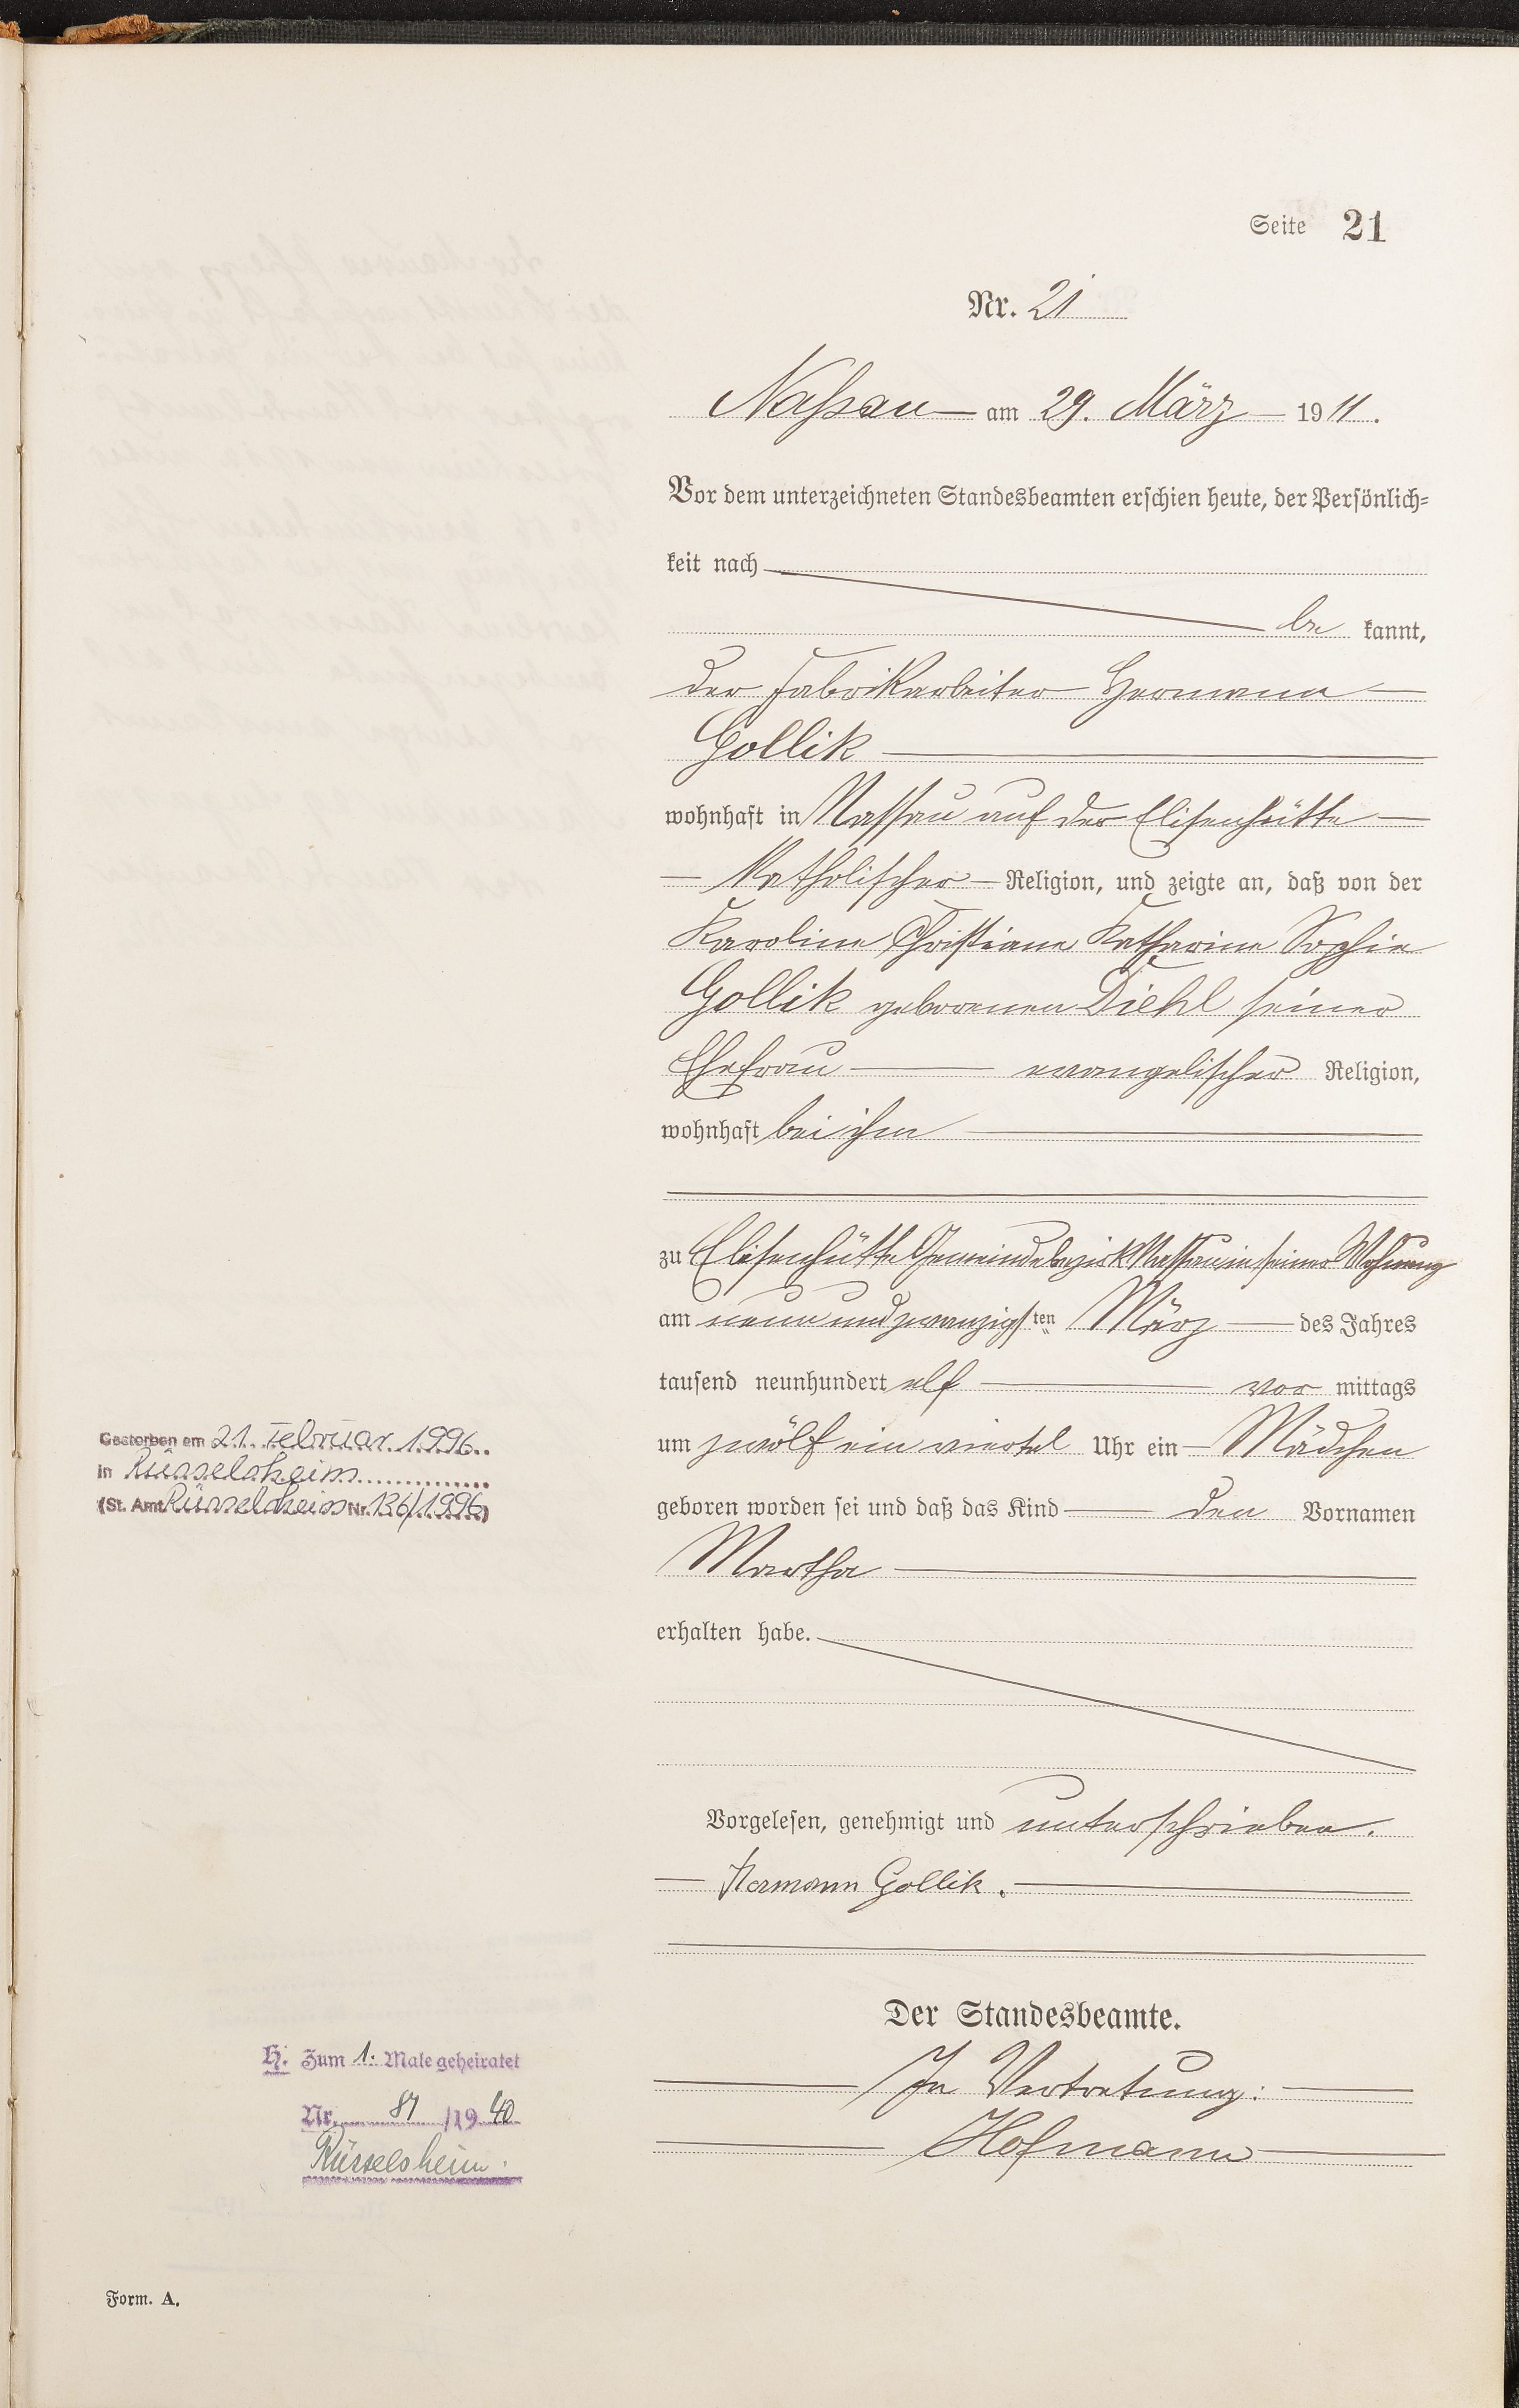 Seite 21
Nr. 21
Nassau am 29. März 1911.
Vor dem unterzeichneten Standesbeamten erschien heute, der Persönlich-
keit nach
be kannt,
der Fabrikarbeiter Hermann
Gollik
wohnhaft in Nassau auf der Elisenhütte
katholischer Religion, und zeigte an, daß von der
Karoline Christiane Katharine Sophie
Gollik geborenen Diehl seiner
Ehefrau evangelischer Religion,
wohnhaft bei ihm
zu Elisenhütte Gemeindebezirk Nassau in seiner Wohnung
am neunundzwanzigsten März des Jahres
tausend neunhundert elf vor mittags
um zwölf ein viertel Uhr ein Mädchen
geboren worden sei und daß das Kind den Vornamen
Martha
erhalten habe.
Vorgelesen, genehmigt und unterschrieben.
Hermann Gollik.
Der Standesbeamte.
In Vertretung:
Hofmann
Gestorben am 21. Februar 1996
in Rüsselsheim
(St. Amt Rüsselsheim Nr. 136/1996)
H. Zum 1. Male geheiratet
Nr. 81/1940
Rüsselsheim.
Form. A.